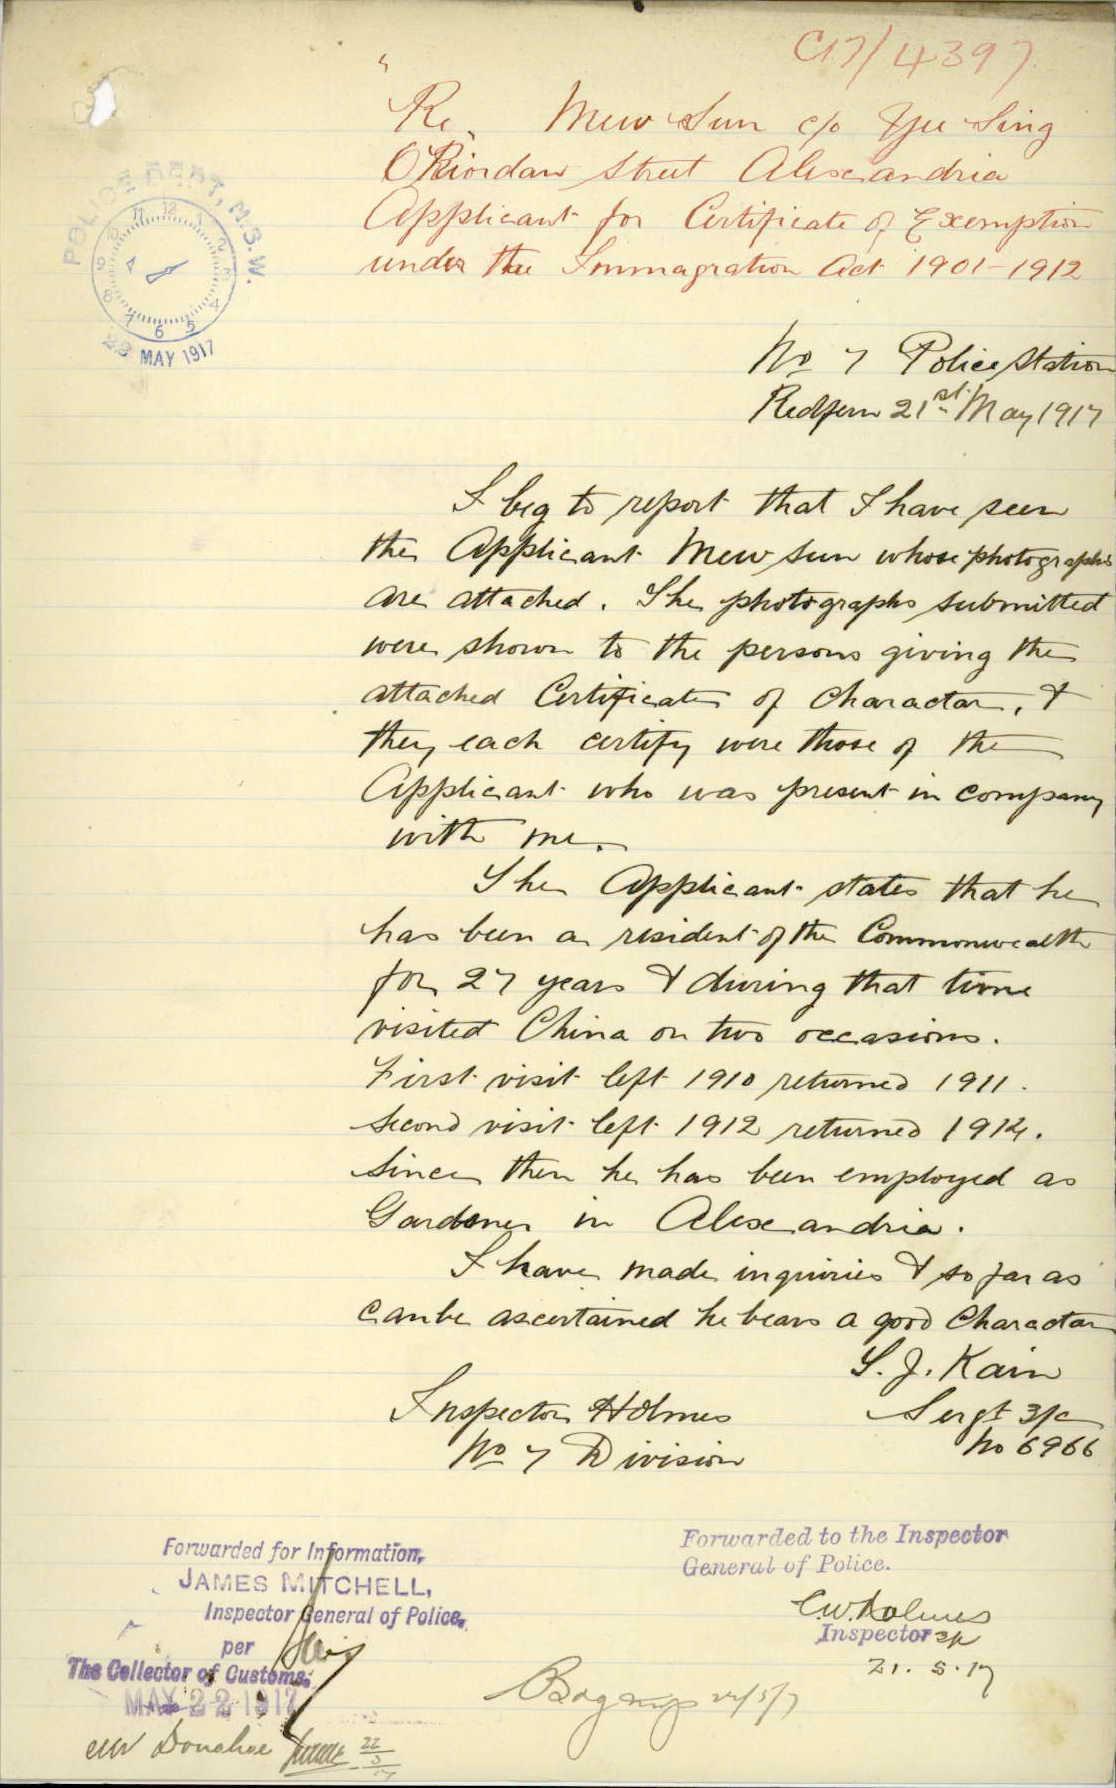 C17/4397
Re Mew Sun c/o Yee Sing
O'Riordan Street Alexandria
Applicant for Certificate of Exemption
under the Immagration Act 1901-1912
POLICE DEPT, N.S.W.
MAY 1917
No 7 Police Station
Redfern 21st May 1917
I beg to report that I have seen
the Applicant Mew Sun whose photographs
are attached. The photographs submitted
were shown to the persons giving the
attached Certificates of Character, &
they each certify were those of the
Applicant who was present in company
with me.
The Applicant states that he
has been a resident of the Commonwealth
for 27 years & during that time
visited China on two occasions.
First visit left 1910 returned 1911.
Second visit left 1912 returned 1914.
Since then he has been employed as
Gardener in Alexandria.
I have made inquiries & so far as
can be ascertained he bears a good Character
S. J. Kain
Sergt 3/c
No 6966
Inspector Holmes
No 7 Division
Forwarded for Information,
JAMES MITCHELL,
Inspector General of Police,
per
The Collector of Customs.
MAY 22 1917
Donahoe 22/5/17
Forwarded to the Inspector
General of Police.
C.W. Holmes
Inspector
21.5.17